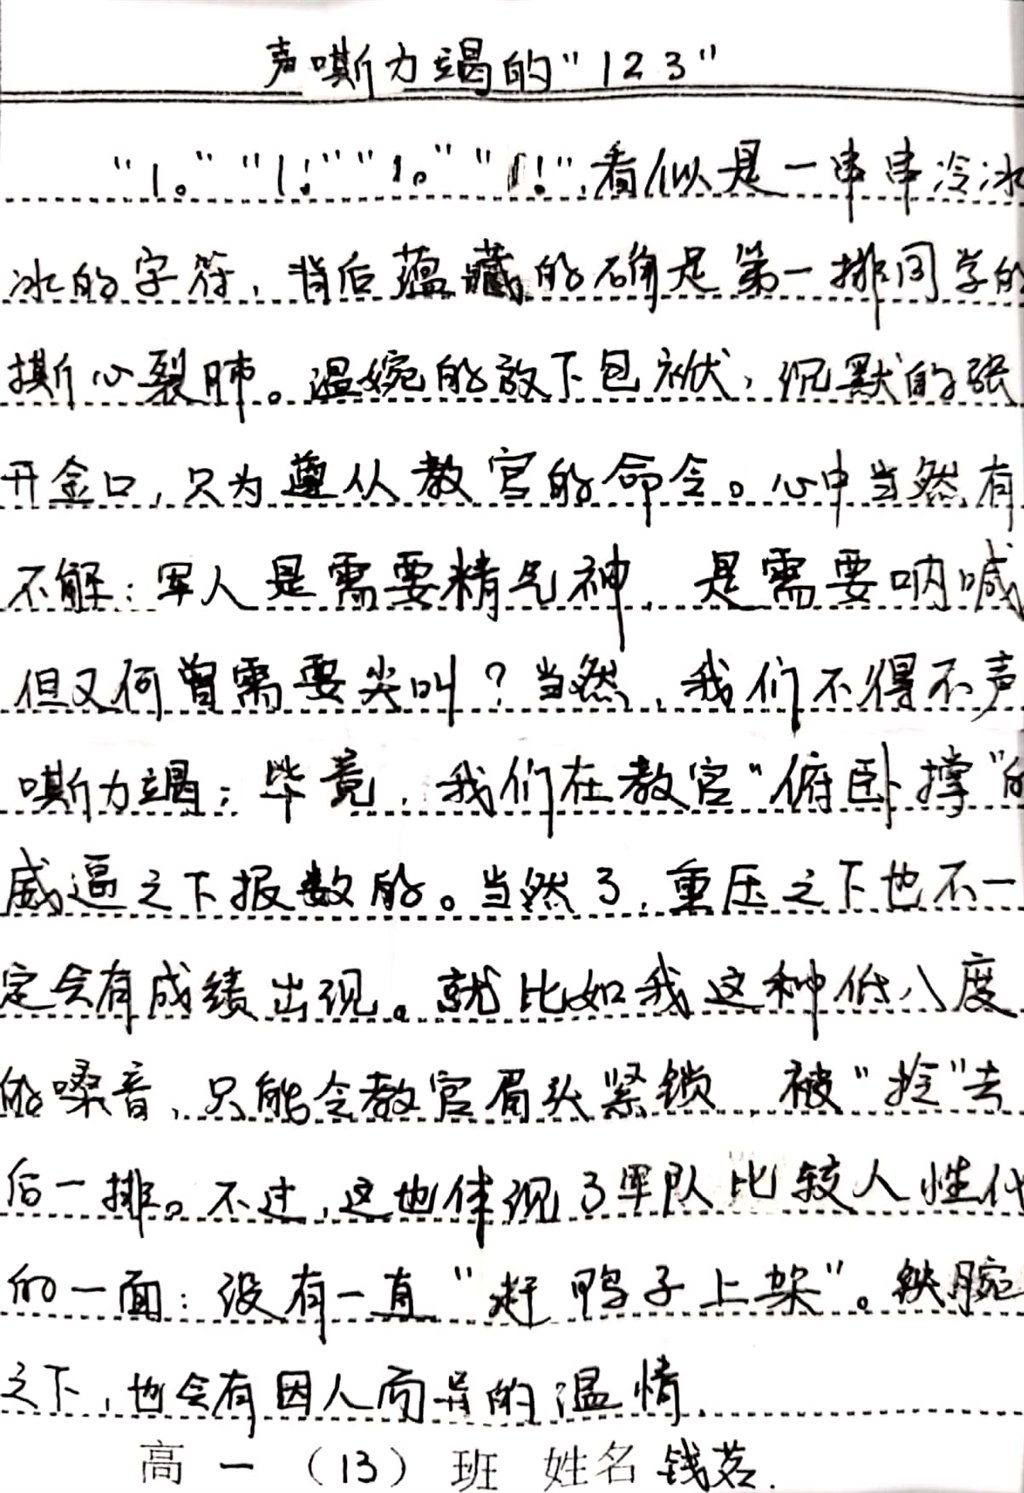 声嘶力竭的“123”
“1。”“1！”“1。”“1！”，看似是一串串冷冰
冰的字符，背后蕴藏的确是第一排同学的
撕心裂肺。温婉的放下包袱，沉默的张
开金口，只为遵从教官的命令。心中当然有
不解：军人是需要精气神，是需要呐喊
但又何曾需要尖叫？当然，我们不得不声
嘶力竭；毕竟，我们在教官“俯卧撑”的
威逼之下报数的。当然了，重压之下也不一
定会有成绩出现。就比如我这种低八度
的嗓音，只能令教官眉头紧锁，被“捡”去
后一排。不过，这也体现了军队比较人性化
的一面：没有一直“赶鸭子上架”。铁腕
之下，也会有因人而异的温情.
高一（13）班 姓名 钱茗.